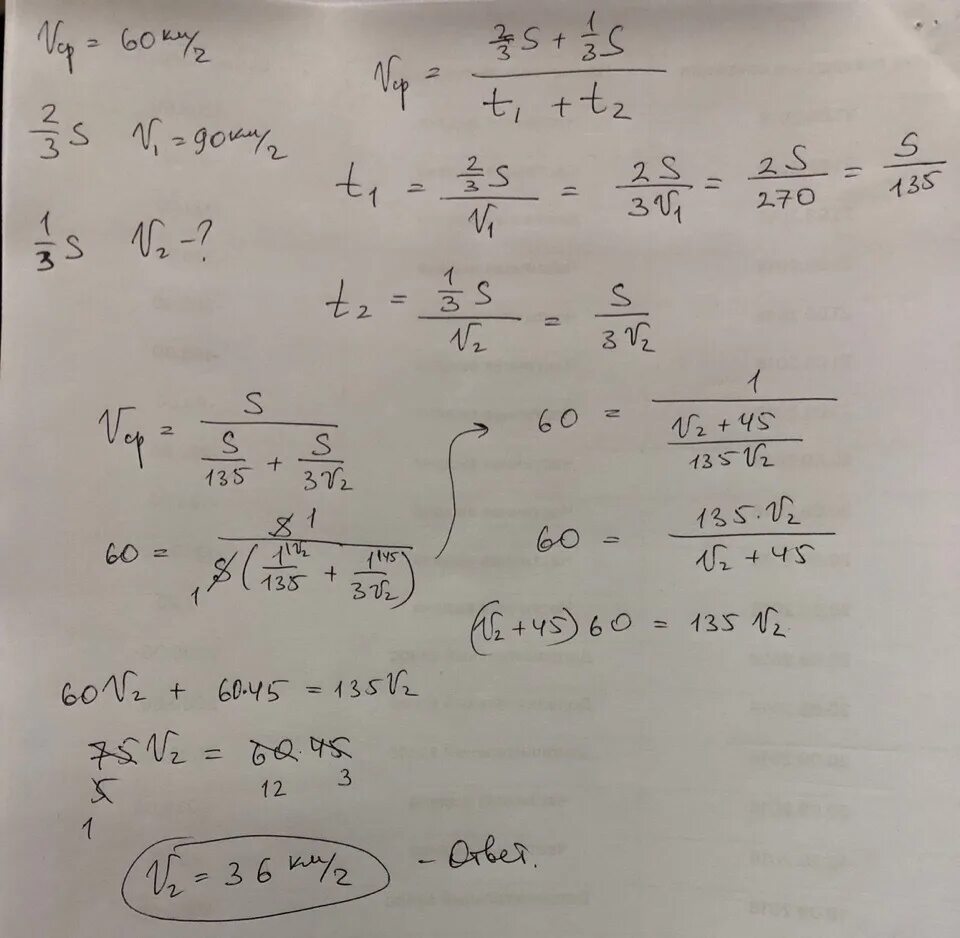 Vср = 60 км/ч
2/3 S V₁ = 90 км/ч
1/3 S V₂ - ?
Vср = (2/3 S + 1/3 S) / (t₁ + t₂)
t₁ = (2/3 S) / V₁ = 2S / 3V₁ = 2S / 270 = S / 135
t₂ = (1/3 S) / V₂ = S / 3V₂
Vср = S / (S/135 + S/3V₂)
60 = S 1 / 1 S (1|V₂/135 + 1|45/3V₂)
60 = 1 / ((V₂ + 45) / 135V₂)
60 = 135·V₂ / (V₂ + 45)
(V₂ + 45) 60 = 135 V₂
60V₂ + 60·45 = 135V₂
75 V₂ = 60·45
5 12 3
1
V₂ = 36 км/ч - Ответ.